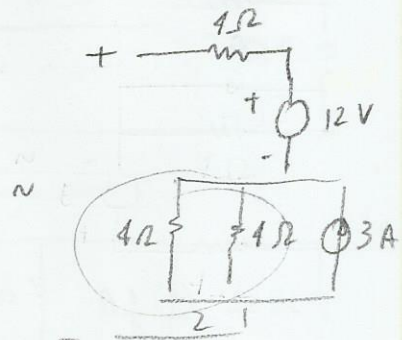 4Ω
+
+ 12 V
-
~
4Ω 4Ω 3 A
2 1